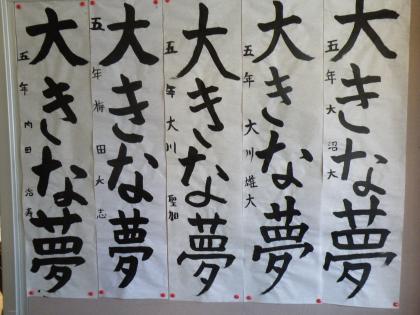 大きな夢
五年 大沼大
大きな夢
五年 大川雄大
大きな夢
五年 大川聖加
大きな夢
五年 梅田大志
大きな夢
五年 内田